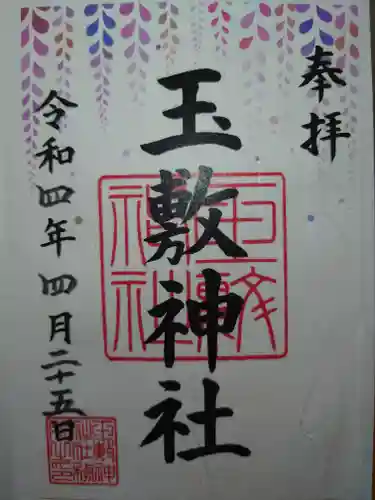 奉拝
玉敷神社
令和四年四月二十五日
玉敷神社